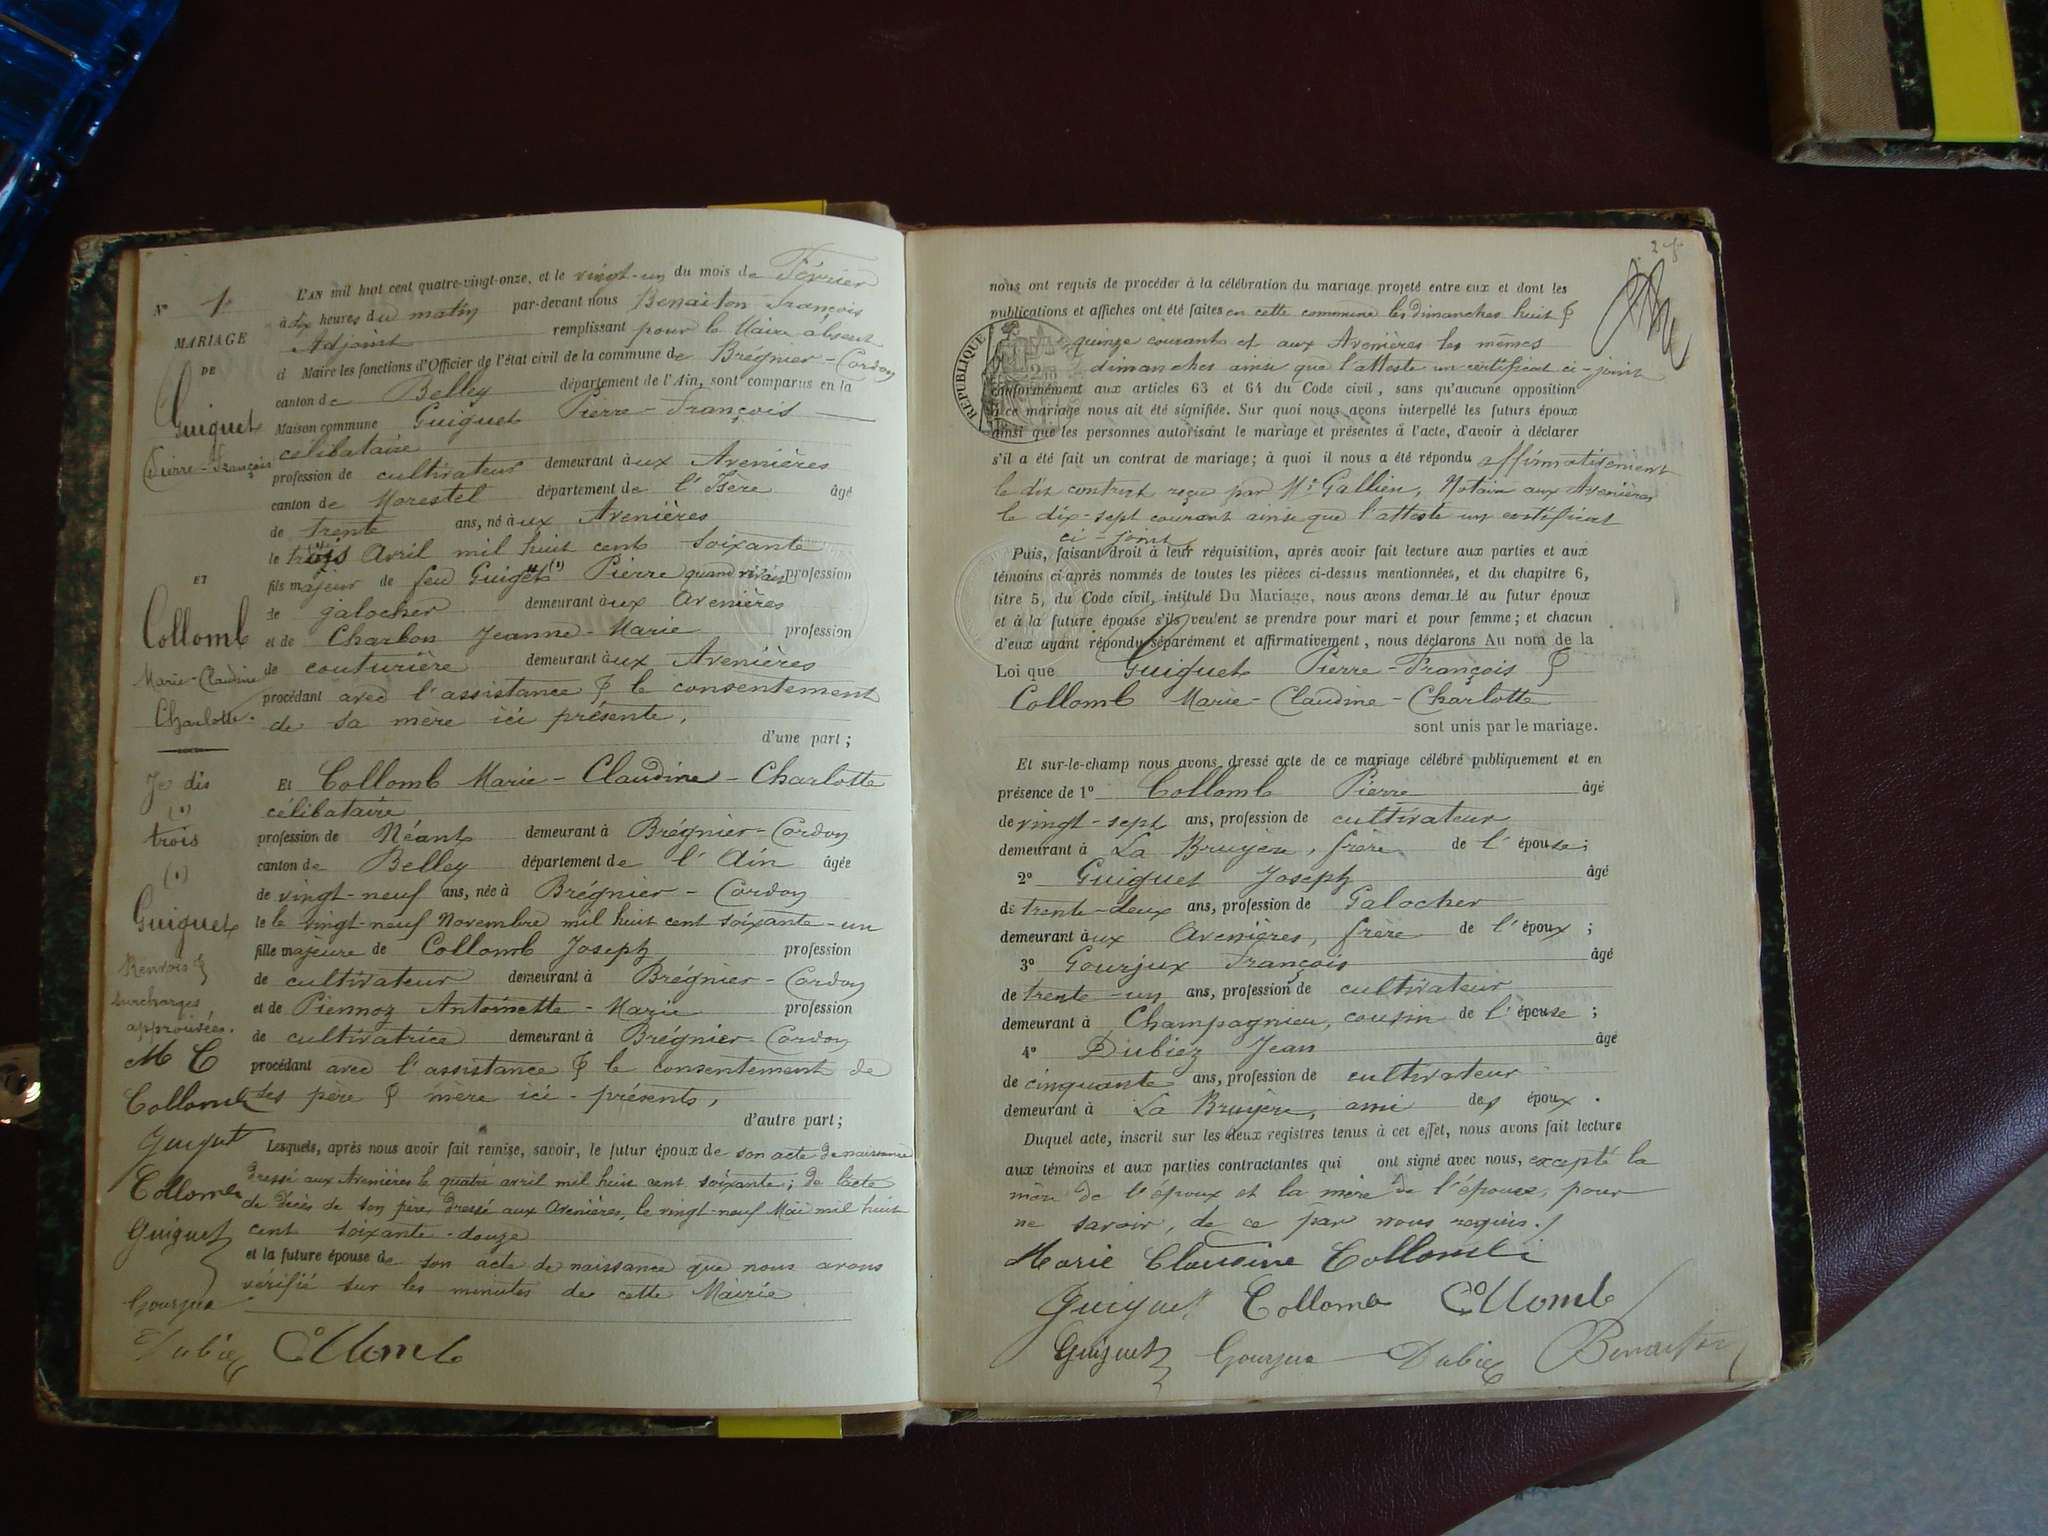 N° 1
MARIAGE
DE
Guiguet
Pierre-François
ET
Collomb
Marie-Claudine
Charlotte.
Je dis
(1)
trois
(1)
Guiguet
Renvois &
surcharges
approuvées.
M C
Collomb
Guiguet
Collomb
Guiguet
Gourjux
Dubiez Collomb
L'AN mil huit cent quatre-vingt-onze, et le vingt-un du mois de Février
à dix heures du matin par-devant nous Benaiton François
Adjoint remplissant pour le Maire absent
d Maire les fonctions d'Officier de l'état civil de la commune de Brégnier-Cordon
canton de Belley département de l'Ain, sont comparus en la
Maison commune Guiguet Pierre-François
célibataire
profession de cultivateur demeurant à ux Avenières
canton de Morestel département de l'Isère âgé
de trente ans, né à ux Avenières
le trois Avril mil huit cent soixante
fils majeur de feu Guiguet (1) Pierre quand vivait profession
de galocher demeurant à ux Avenières
et de Charbon Jeanne-Marie profession
de couturière demeurant à ux Avenières
procédant avec l'assistance & le consentement
de sa mère ici présente,
d'une part ;
Et Collomb Marie-Claudine-Charlotte
célibataire
profession de Néant demeurant à Brégnier-Cordon
canton de Belley département de l'Ain âgée
de vingt-neuf ans, née à Brégnier-Cordon
le le vingt-neuf Novembre mil huit cent soixante-un
fille majeure de Collomb Joseph profession
de cultivateur demeurant à Brégnier-Cordon
et de Piennoz Antoinette-Marie profession
de cultivatrice demeurant à Brégnier-Cordon
procédant avec l'assistance & le consentement de
ses père & mère ici-présents,
d'autre part ;
Lesquels, après nous avoir fait remise, savoir, le futur époux de son acte de naissance
dressé aux Avenières le quatre avril mil huit cent soixante; de l'acte
de décès de son père dressé aux Avenières, le vingt-neuf Mai mil huit
cent soixante-douze
et la future épouse de son acte de naissance que nous avons
vérifié sur les minutes de cette Mairie
2
nous ont requis de procéder à la célébration du mariage projeté entre eux et dont les
publications et affiches ont été faites en cette commune les dimanches huit &
quinze courant et aux Avenières les mêmes
dimanches ainsi que l'atteste un certificat ci-joint
RÉPUBLIQUE
conformément aux articles 63 et 64 du Code civil, sans qu'aucune opposition
à ce mariage nous ait été signifiée. Sur quoi nous avons interpellé les futurs époux
ainsi que les personnes autorisant le mariage et présentes à l'acte, d'avoir à déclarer
s'il a été fait un contrat de mariage; à quoi il nous a été répondu affirmativement
le dit contrat reçu par Me Gallien, Notaire aux Avenières
le dix-sept courant ainsi que l'atteste un certificat
ci-joint
Puis, faisant droit à leur réquisition, après avoir fait lecture aux parties et aux
témoins ci-après nommés de toutes les pièces ci-dessus mentionnées, et du chapitre 6,
titre 5, du Code civil, intitulé Du Mariage, nous avons demandé au futur époux
et à la future épouse s'ils veulent se prendre pour mari et pour femme ; et chacun
d'eux ayant répondu séparément et affirmativement, nous déclarons Au nom de la
Loi que Guiguet Pierre-François &
Collomb Marie-Claudine-Charlotte
sont unis par le mariage.
Et sur-le-champ nous avons dressé acte de ce mariage célébré publiquement et en
présence de 1° Collomb Pierre âgé
de vingt-sept ans, profession de cultivateur
demeurant à La Bruyère, frère de l'épouse;
2° Guiguet Joseph âgé
de trente-deux ans, profession de Galocher
demeurant à ux Avenières, frère de l'époux ;
3° Gourjux François âgé
de trente-un ans, profession de cultivateur
demeurant à Champagnieu, cousin de l'épouse ;
4° Dubiez Jean âgé
de cinquante ans, profession de cultivateur
demeurant à La Bruyère, ami des époux.
Duquel acte, inscrit sur les deux registres tenus à cet effet, nous avons fait lecture
aux témoins et aux parties contractantes qui ont signé avec nous, excepté la
mère de l'époux et la mère de l'épouse, pour
ne savoir, de ce par nous requis.
Marie Claudine Collomb
Guiguet Collomb Collomb
Guiguet Gourjux Dubiez Benaiton